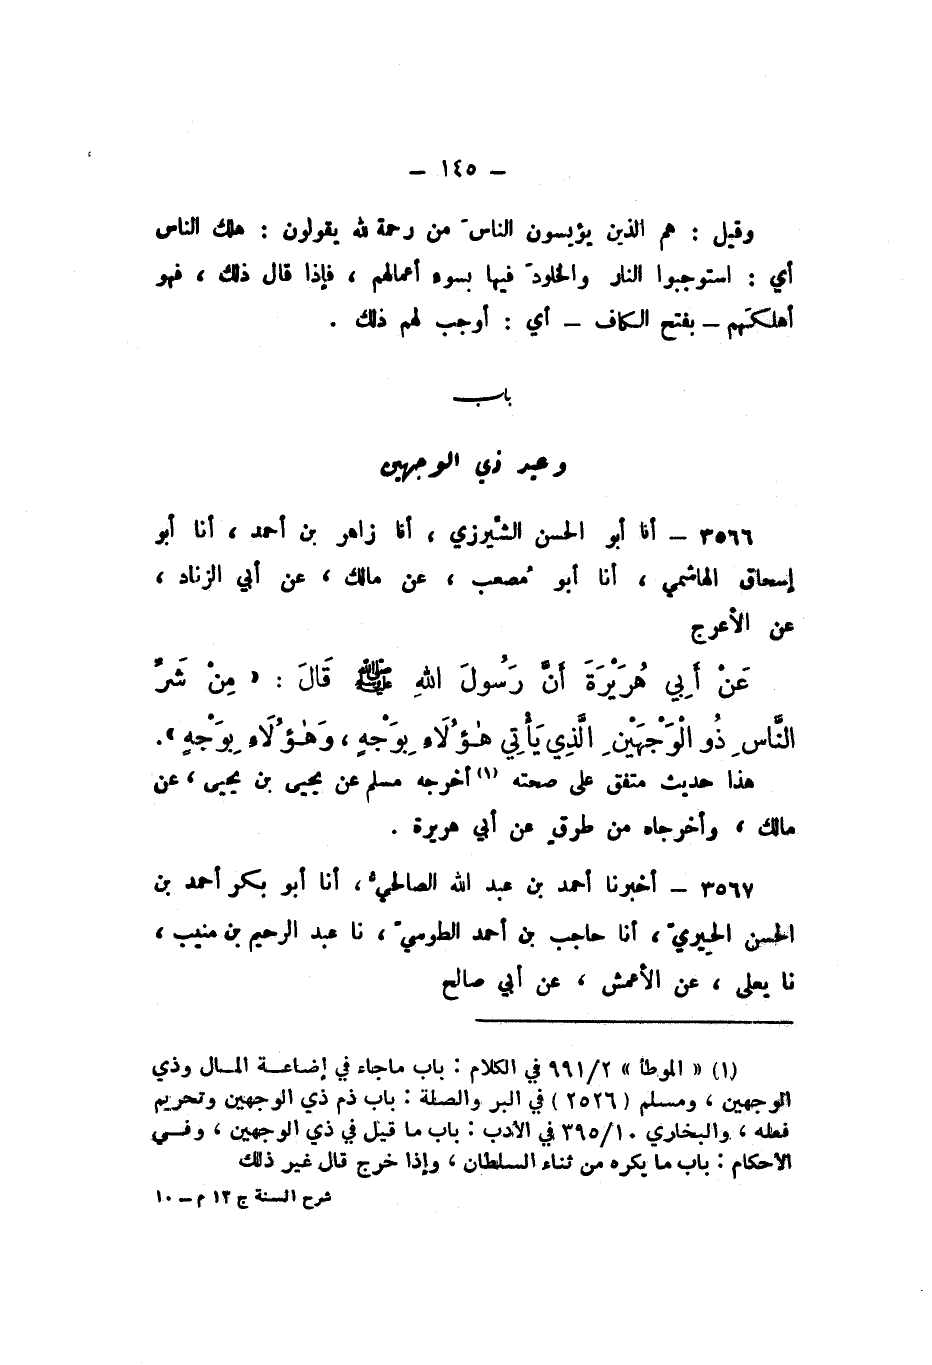 – ١٤٥ –
وقيل : هم الذين يؤيسون الناسَ من رحمة الله يقولون : هلك الناس
أي : استوجبوا النار والخلودَ فيها بسوء أعمالهم ، فإذا قال ذلك ، فهو
أهلكَهم – بفتح الكاف – أي : أوجب لهم ذلك .
باب
وعيد ذي الوجهين
٣٥٦٦ – أنا أبو الحسن الشِّيرزي ، أنا زاهر بن أحمد ، أنا أبو
إسحاق الهاشمي ، أنا أبو مُصعب ، عن مالك ، عن أبي الزناد ،
عن الأعرج
عَنْ أَبِي هُرَيْرَةَ أَنَّ رَسُولَ اللهِ ﷺ قَالَ : « مِنْ شَرِّ
النَّاسِ ذُو الْوَجْهَيْنِ الَّذِي يَأْتِي هٰؤُلَاءِ بِوَجْهٍ ، وَهٰؤُلَاءِ بِوَجْهٍ » .
هذا حديث متفق على صحته (١) أخرجه مسلم عن يحيى بن يحيى ، عن
مالك ، وأخرجاه من طرقٍ عن أبي هريرة .
٣٥٦٧ – أخبرنا أحمد بن عبد الله الصالحيُّ ، أنا أبو بكر أحمد بن
الحسن الحِيريُّ ، أنا حاجب بن أحمد الطوسيُّ ، نا عبد الرحيم بن منيب ،
نا يعلى ، عن الأعمش ، عن أبي صالح
(١) « الموطأ » ٩٩١/٢ في الكلام : باب ماجاء في إضاعة المال وذي
الوجهين ، ومسلم ( ٢٥٢٦ ) في البر والصلة : باب ذم ذي الوجهين وتحريم
فعله ، والبخاري ٣٩٥/١٠ في الأدب : باب ما قيل في ذي الوجهين ، وفي
الأحكام : باب ما يكره من ثناء السلطان ، وإذا خرج قال غير ذلك
شرح السنة ج ١٣ م – ١٠